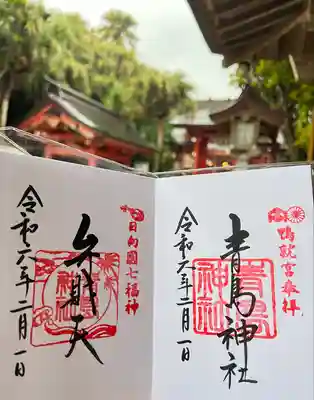 鴨就宮奉拝
青島神社
青島神社
令和六年二月一日
日向國七福神
弁財天
令和六年二月一日